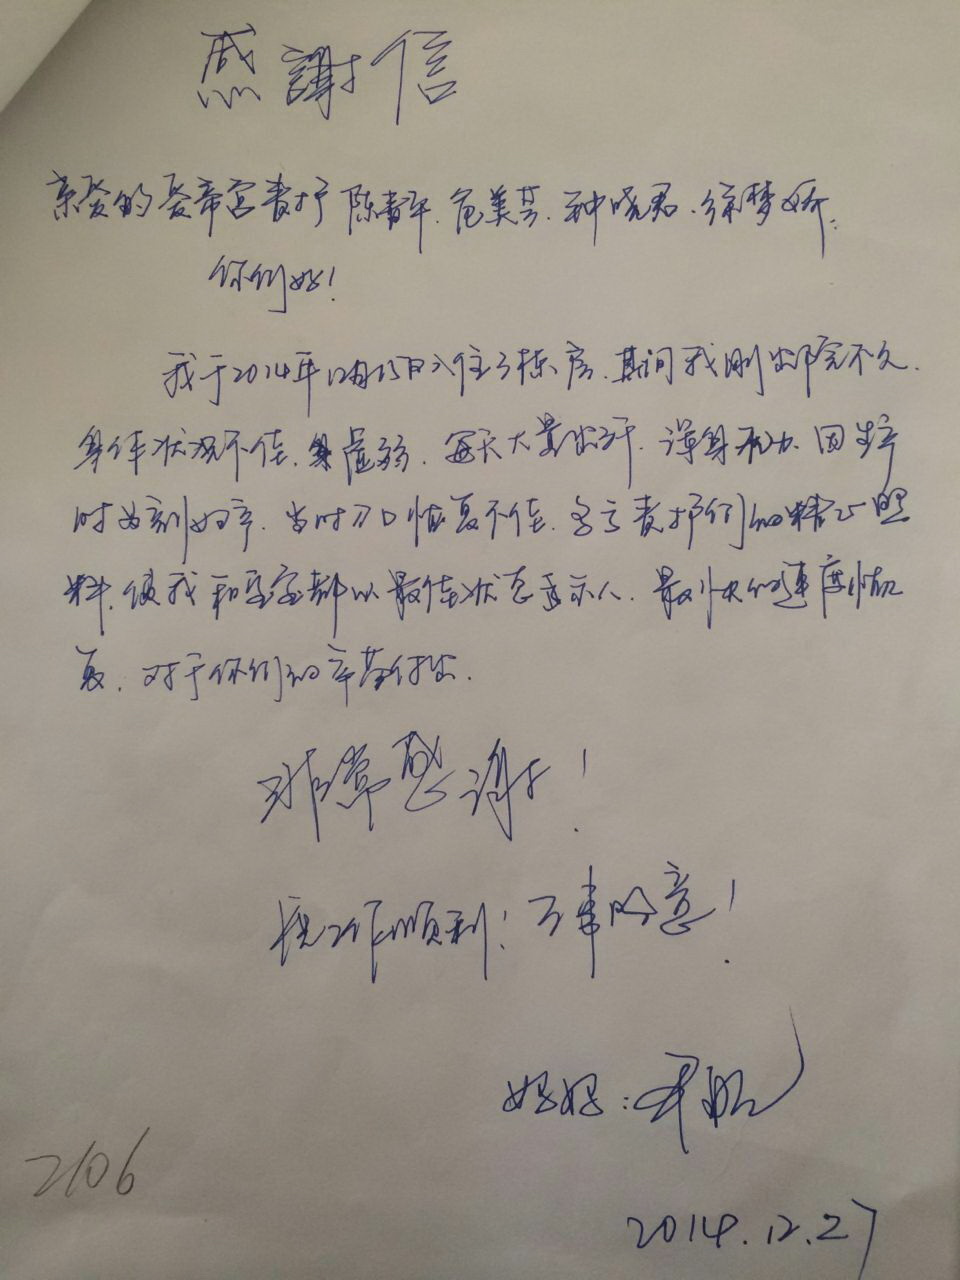 感謝信
亲爱的爱帝宫责护陈青平、危美芸、种晓君、徐梦娇：
你们好！
我于2014年12月15日入住3栋房、其间我刚出院不久、
身体状况不佳、虚弱、每天大量出汗、浑身无力、因生产
时为剖妇产、当时刀口恢复不佳、多亏责护们的精心照
料、使我和宝宝都以最佳状态示人、最快的速度恢
复、对于你们的辛苦付出、
非常感谢！
祝工作顺利！万事如意！
妈妈：
2106
2014.12.27